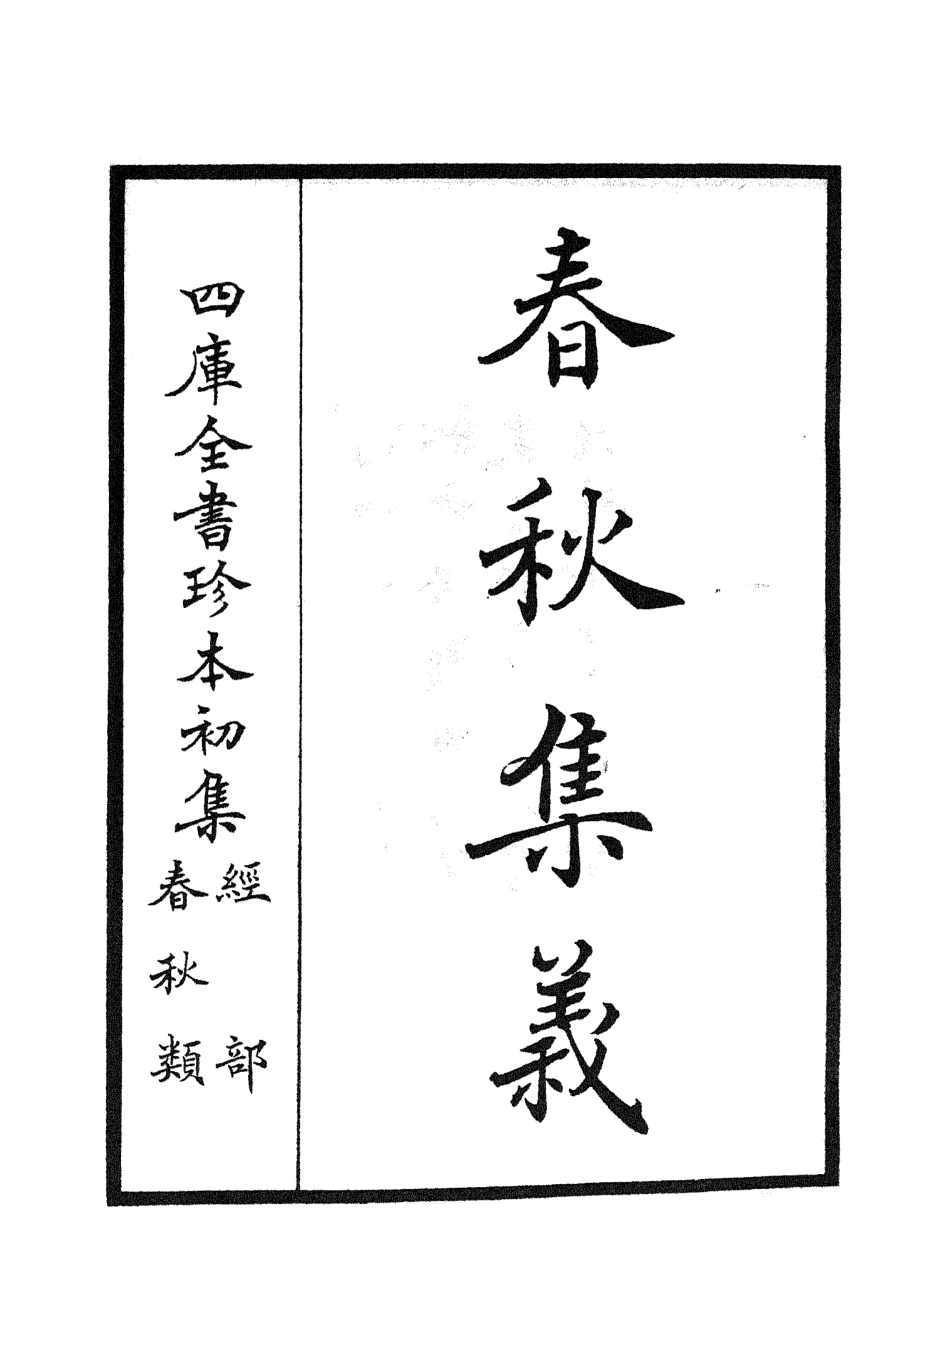 春秋集義
四庫全書珍本初集
經部
春秋類